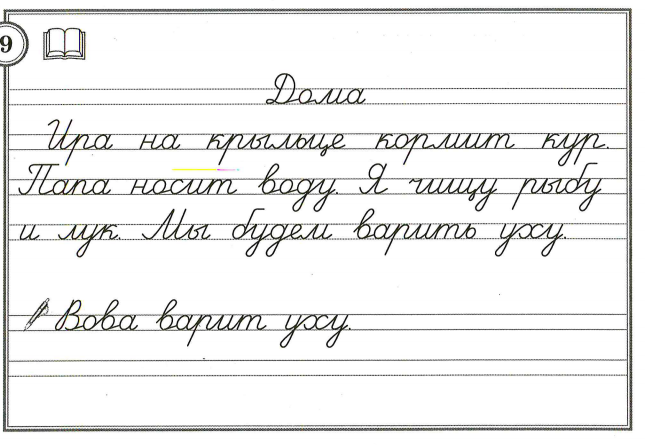 9
Дома
Ира на крыльце кормит кур.
Папа носит воду. Я чищу рыбу
и лук. Мы будем варить уху.
Вова варит уху.